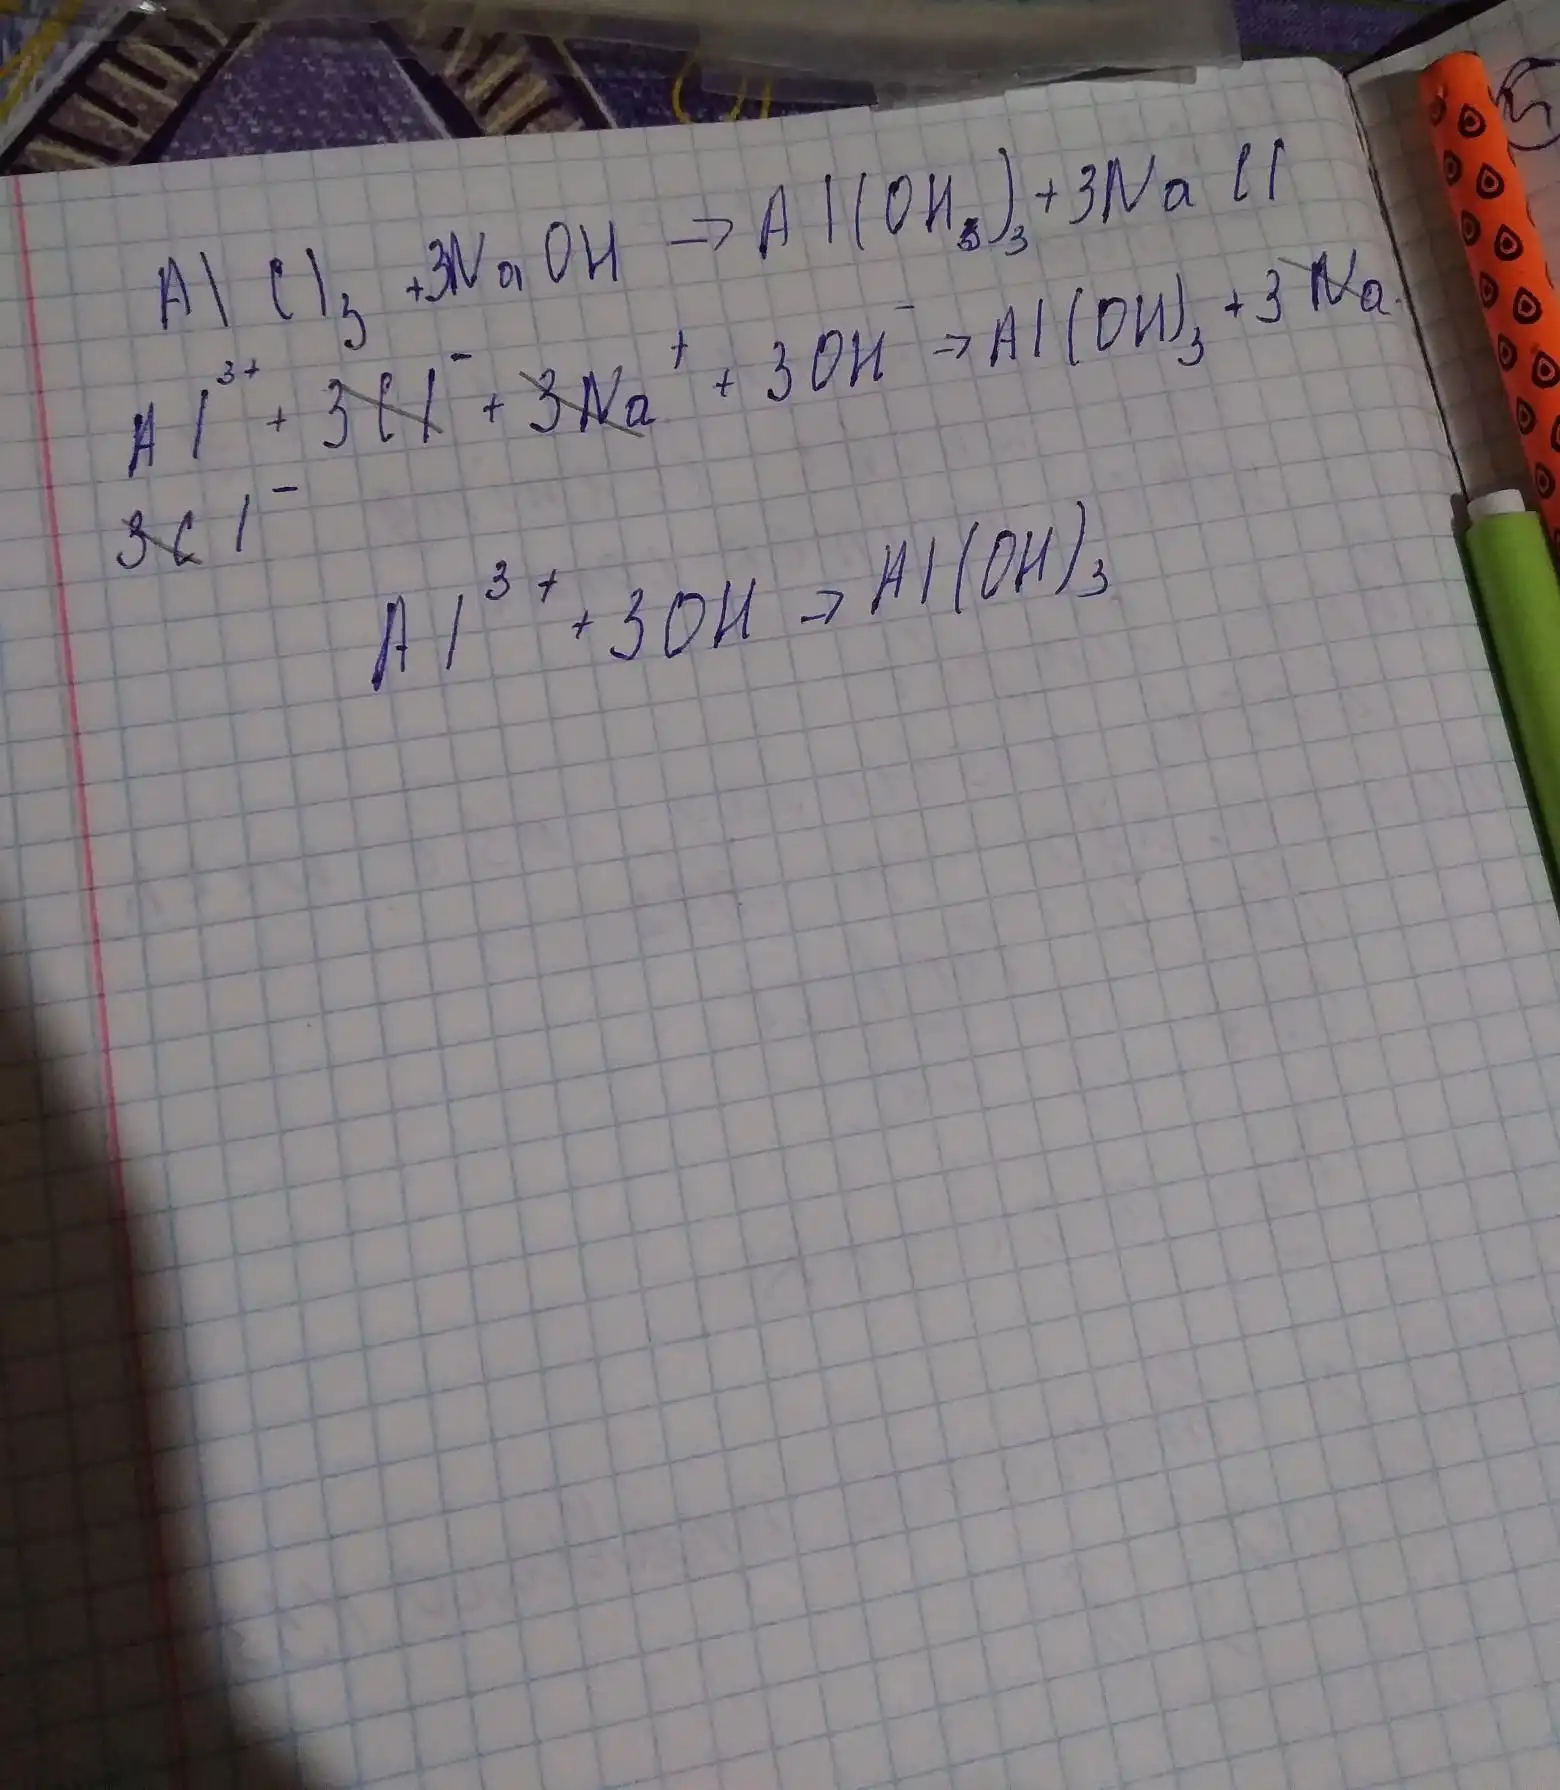 AlCl₃ + 3NaOH → Al(OH₃)₃ + 3NaCl
Al³⁺ + 3Cl⁻ + 3Na⁺ + 3OH⁻ → Al(OH)₃ + 3Na
3Cl⁻
Al³⁺ + 3OH → Al(OH)₃